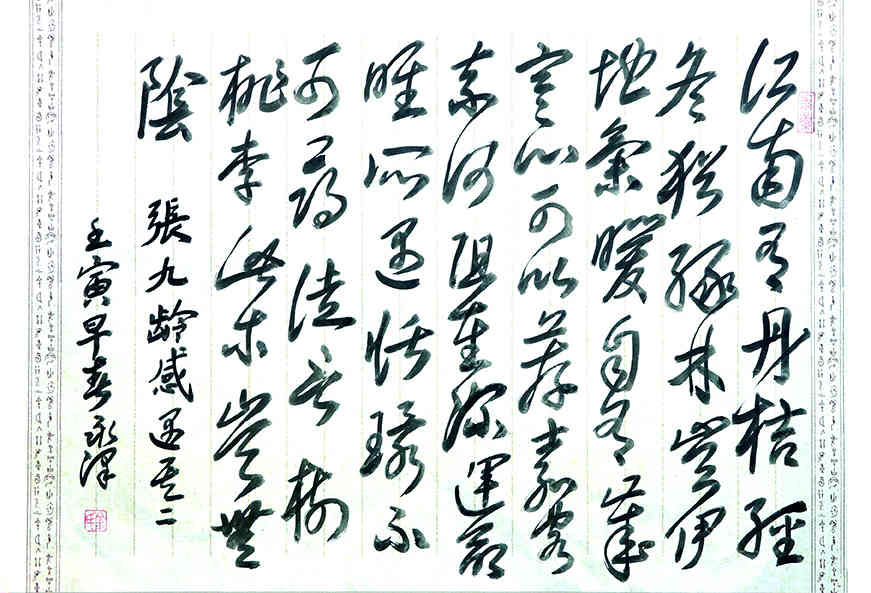 江南有丹桔經
冬猶綠林豈伊
地氣暖自有歲
寒心可以荐嘉客
奈何阻重深運命
唯所遇循環不
可尋徒言樹
桃李此木豈無
陰 張九齡感遇其二
壬寅早春